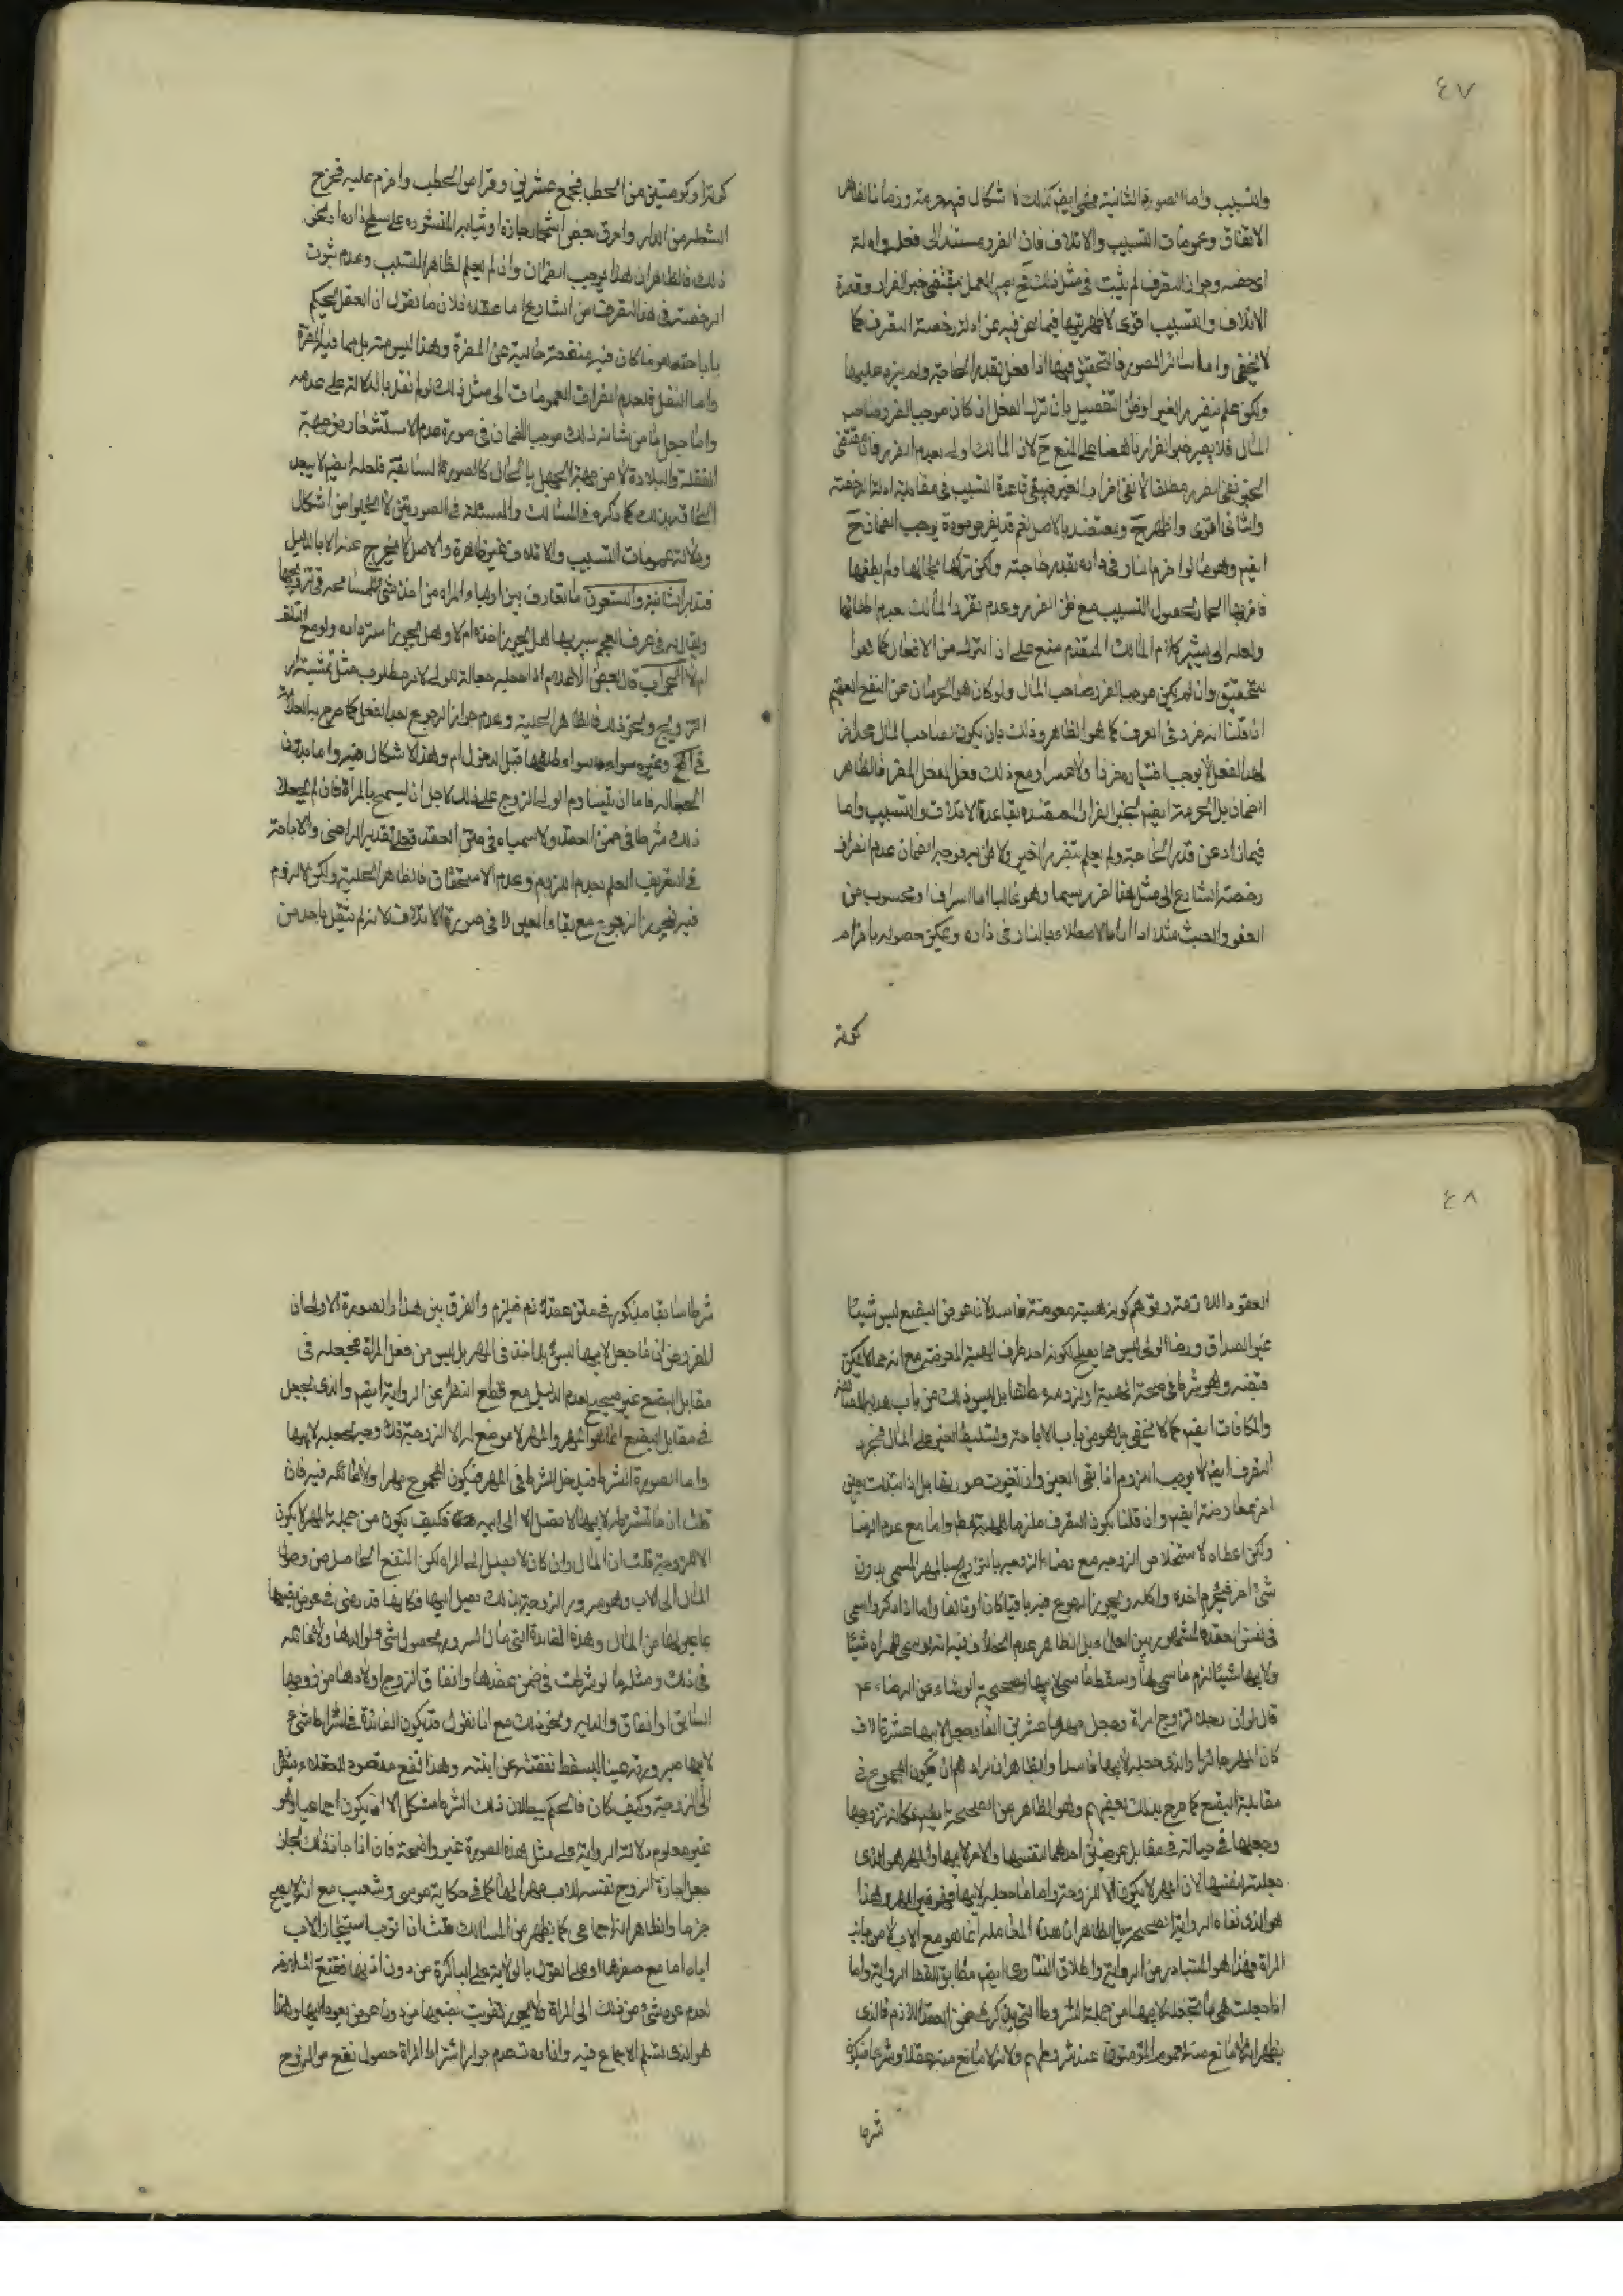 ٤٧
والتسبيب واما الصورة الثانية فهى ايضا كذلك لا اشكال فى حرمته وضمانه لظاهر
الاتفاق وعمومات التسبيب والاتلاف فان الضرر مستند الى فعله وادلة
رخصته وجواز التصرف لم يثبت فى مثل ذلك فيجب العمل بمقتضى خبر الضرار وقاعدة
الاتلاف والتسبيب اقوى لاظهريتها فيما نحن فيه عن ادلة رخصته التصرف كما
لا يخفى واما سائر الصور فالتحقيق فيها اذا فعل بقدر الحاجة ولم يزد عليها
ولكن علم بتضرر الغير او ظن التفصيل بان ترك الفعل ان كان موجبا لضرر صاحب
المال فلا يصير خبر الضرار ناهضا على المنع ح لان المالك اولى بعدم الضرر فان مقتضى
الخبر نفى الضرر مطلقا لا نفى اضرار الغير فيبقى قاعدة التسبيب فى مقابلة ادلة الرخصة
والثانى اقوى واظهر ح ومعتضد بالاصل نعم قد يفرض صورة يوجب الضمان ح
ايضا وهو ما لو اضرم النار فى داره بقدر حاجته ولكن تركها بحالها ولم يطفها
فاضر بها الجار لحصول التسبيب مع ظن الضرر وعدم تضرر المالك بعدم اطفائها
ولعله الى يشير كلام المالك المتقدم منع على ان الترك من الافعال كما هو
التحقيق وان لم يكن موجبا لضرر صاحب المال ولو كان هو الحرمان عن النفع العظيم
اذ قلنا انه ضرر فى العرف كما هو الظاهر وذلك بان يكون لصاحب المال
لهذا الفعل لا يوجب اختياره ضررا ولا عسرا ومع ذلك فعل الفعل المضر فالظاهر
الضمان بل الحرمة ايضا لخبر الضرار المعتضد بقاعدة الاتلاف والتسبيب واما
فيما زاد عن قدر الحاجة ولم يعلم بتضرر الغير ولا ظن به فوجه الضمان عدم انصراف
رخصة الشارع الى مثل هذا الضرر سيما وهو غالبا اما اسراف او محسوب من
اللغو والعبث مثلا اذا اراد الاصطلاء بالنار فى داره ويمكن حصوله باضرام
كومة
كومة او كومتين من الحطب فجمع عشرين وقرا من الحطب واضرم عليه فخرج
الشطر من الدار واحرق بعض اشجار جاره او ثيابه المنشورة على سطح داره ونحو
ذلك فالظاهر ان هذا يوجب الضمان وان لم يعلم لظاهر التسبيب وعدم ثبوت
الرخصة فى هذا التصرف من الشارع اما عقلا فلان ما نقول ان العقل يحكم
باباحته هو ما كان فيه منفعة خالية عن المضرة وهذا ليس منه بل مما فيه المضرة
واما النقل فلعدم انصراف العمومات الى مثل ذلك لو لم نقل بالدلالة على عدمه
واما جعل ما من شانه ذلك موجبا الضمان فى صورة عدم الاستشعار من جهة
الغفلة والبلادة لا من جهة الجهل بالحال كالصورة السابقة فلعله ايضا لا يبعد
الحاقه بذلك كما ذكره فى المسالك والمسئلة فى الصورتين لا يخلوا من اشكال
ودلالة عمومات التسبيب والاتلاف غير ظاهرة والاصل لا يخرج عنه الا بالدليل
فتدبر الثانية والتسعون ما تعارف بين اولياء المراه من اخذ شئ للمسامحة فى تزويجها
ويقال له فى عرف العجم شيربها هل يجوز اخذه ام لا وهل يجوز استرداده ولو مع التلف
ام لا الجواب قال بعض الاعلام اذا جعله جعالة للولى لامر مطلوب مثل تمشية امر
التزويج ونحو ذلك فالظاهر الحلية وعدم جواز الرجوع بعد الفعل كما صرح به العلامة
فى التحرير وغيره سواء وسواء طلقها قبل الدخول ام وهذا لا اشكال فيه واما بدون
الجعالة فاما ان يتساوم الولى الزوج على ذلك لاجل ان يسمح بالمراة فان لم يجعلا
ذلك شرطا فى ضمن العقد ولا سمياه فى متن العقد فعلى تقدير التراضى والاباحة
فى التعريف العلم بعدم اللزوم وعدم الاستحقاق فالظاهر الحلية ولكن لا لزوم
فيه فيجوز الرجوع مع بقاء العين لا فى صورة الاتلاف لانه لم ينتقل باحد من
٤٨
العقود اللازمة وتوهم كونه هبة معوضة فاسد لان عوض البضع ليس شيئا
غير الصداق ورضا الولى ليس مما يصلح لكونه احد طرف الهبة المعوضة مع انه مما لا يمكن
قبضه وهو شرط فى صحة الهبة او لزومه مطلقا بل ليس ذلك من باب هدية
والمكافات ايضا كما لا يخفى بل هو من باب الاباحة وتسليط الغير على المال فمجرد
التصرف ايضا لا يوجب اللزوم اذا بقى العين وان تغيرت صورتها بل اذا تبدلت بعين
اخر معاوضة ايضا وان قلنا بكون التصرف ملزما للهبة مطلقا واما مع عدم الرضا
ولكن اعطاه لاستخلاص الزوجة مع رضاء الزوجة بالتزويج بالمهر المسمى بدون
شئ اخر فيحرم اخذه واكله ويجوز الرجوع فيه باقيا كان او تالفا واما اذا ذكر واسمى
فى نفس العقد فالمشهور بين العلماء بل الظاهر عدم الخلاف فيه انه لو سمى للمراه شيئا
ولابيها شيئا لزم ما سمى لها وسقط ما سمى لابيها لصحيحة الوشاء عن الرضاء ع
قال لو ان رجلا تزوج امراة وجعل مهرها عشرين الفا وجعل لابيها عشرة الاف
كان المهر جائزا والذى جعله لابيها فاسدا والظاهر ان مرادهم ان يكون المجموع فى
مقابلة البضع كما صرح بذلك بعضهم وهو الظاهر من الصحيحة ايضا فكانه تزوجها
وجعلها فى حبالته فى مقابل عوضين احدهما لنفسها والاخر لابيها والمهر هو الذى
جعلته لنفسها لان المهر لا يكون الا للزوجة واما ما جعله لابيها فهو غير المهر وهذا
هو الذى نفاه الرواية الصحيحة بل الظاهر ان هذه المعاملة انما هو مع الاب لا من جانب
المراة فهذا هو المتبادر من الرواية واطلاق الفتاوى ايضا مطابق للفظ الرواية واما
اذا جعلت هى ما تجعله لابيها من جملة الشروط التى يذكر فى ضمن العقد اللازم فالذى
يظهر انه لا مانع منه لعموم المؤمنون عند شروطهم ولانه لا مانع منه عقلا وشرعا فيكون
شرطا
شرطا سائغا مذكورا فى متن عقد لازم فيلزم والفرق بين هذا والصورة الاولى ان
المفروض ان ما جعل لابيها ليس بداخل فى المهر بل ليس من فعل المراة فيجعله فى
مقابل البضع غير صحيح لعدم الدليل مع قطع النظر عن الرواية ايضا والذى يجعل
فى مقابل البضع انما هو المهر والمهر لا موضع له الا الزوجة فلا وجه لجعله لابيها
واما الصورة الشرط فيدخل الشرط فى المهر فيكون المجموع مهرا ولا غائلة فيه فان
قلت ان ما تشترطه لابيها لا تصل الا الى ابيه فكيف يكون من جملة المهر لا يكون
الا للزوجة قلت ان المال وان كان لا يصل الى المراه لكن النفع الحاصل من وصول
المال الى الاب وهو سرور الزوجة بذلك يصل اليها فكانها قد رضى فى عوض بضعها
بما عين لها من المال وهذه الفائدة التى هى السرور بحصول شئ لوالدها ولا غائلة
فى ذلك ومثله ما لو شرطت فى ضمن عقدها وانفاق الزوج اولادها من زوجها
السابق او انفاق والديه ونحو ذلك مع انا نقول قد يكون الفائدة فى اشتراط شئ
لابيها صيرورته غنيا ليسقط نفقته عن ابنته وهذا نفع مقصود للعقلاء ينتقل
الى الزوجة وكيف كان فالحكم ببطلان ذلك الشرط مشكل الا ان يكون اجماعيا وهو
غير معلوم ودلالة الرواية على مثل هذه الصورة غير واضحة فان اذا جاز ذلك لجاز
جعل اجارة الزوج نفسه للاب مهرا لها كما فى حكاية موسى وشعيب مع انه لا يصح
جزما والظاهر انه اجماعى كما يظهر من المسالك قلت اذا نوجب استيجار الاب
اياه اما مع صغرها او على القول بالولاية على الباكرة من دون اذنها فمنع
لعدم عود شئ من ذلك الى المراة ولا يجوز تفويت بضعها من دون عوض يعود اليها وهذا
هو الذى نسلم الاجماع فيه وافاده عدم جواز اشتراط المراة حصول نفع من الزوج